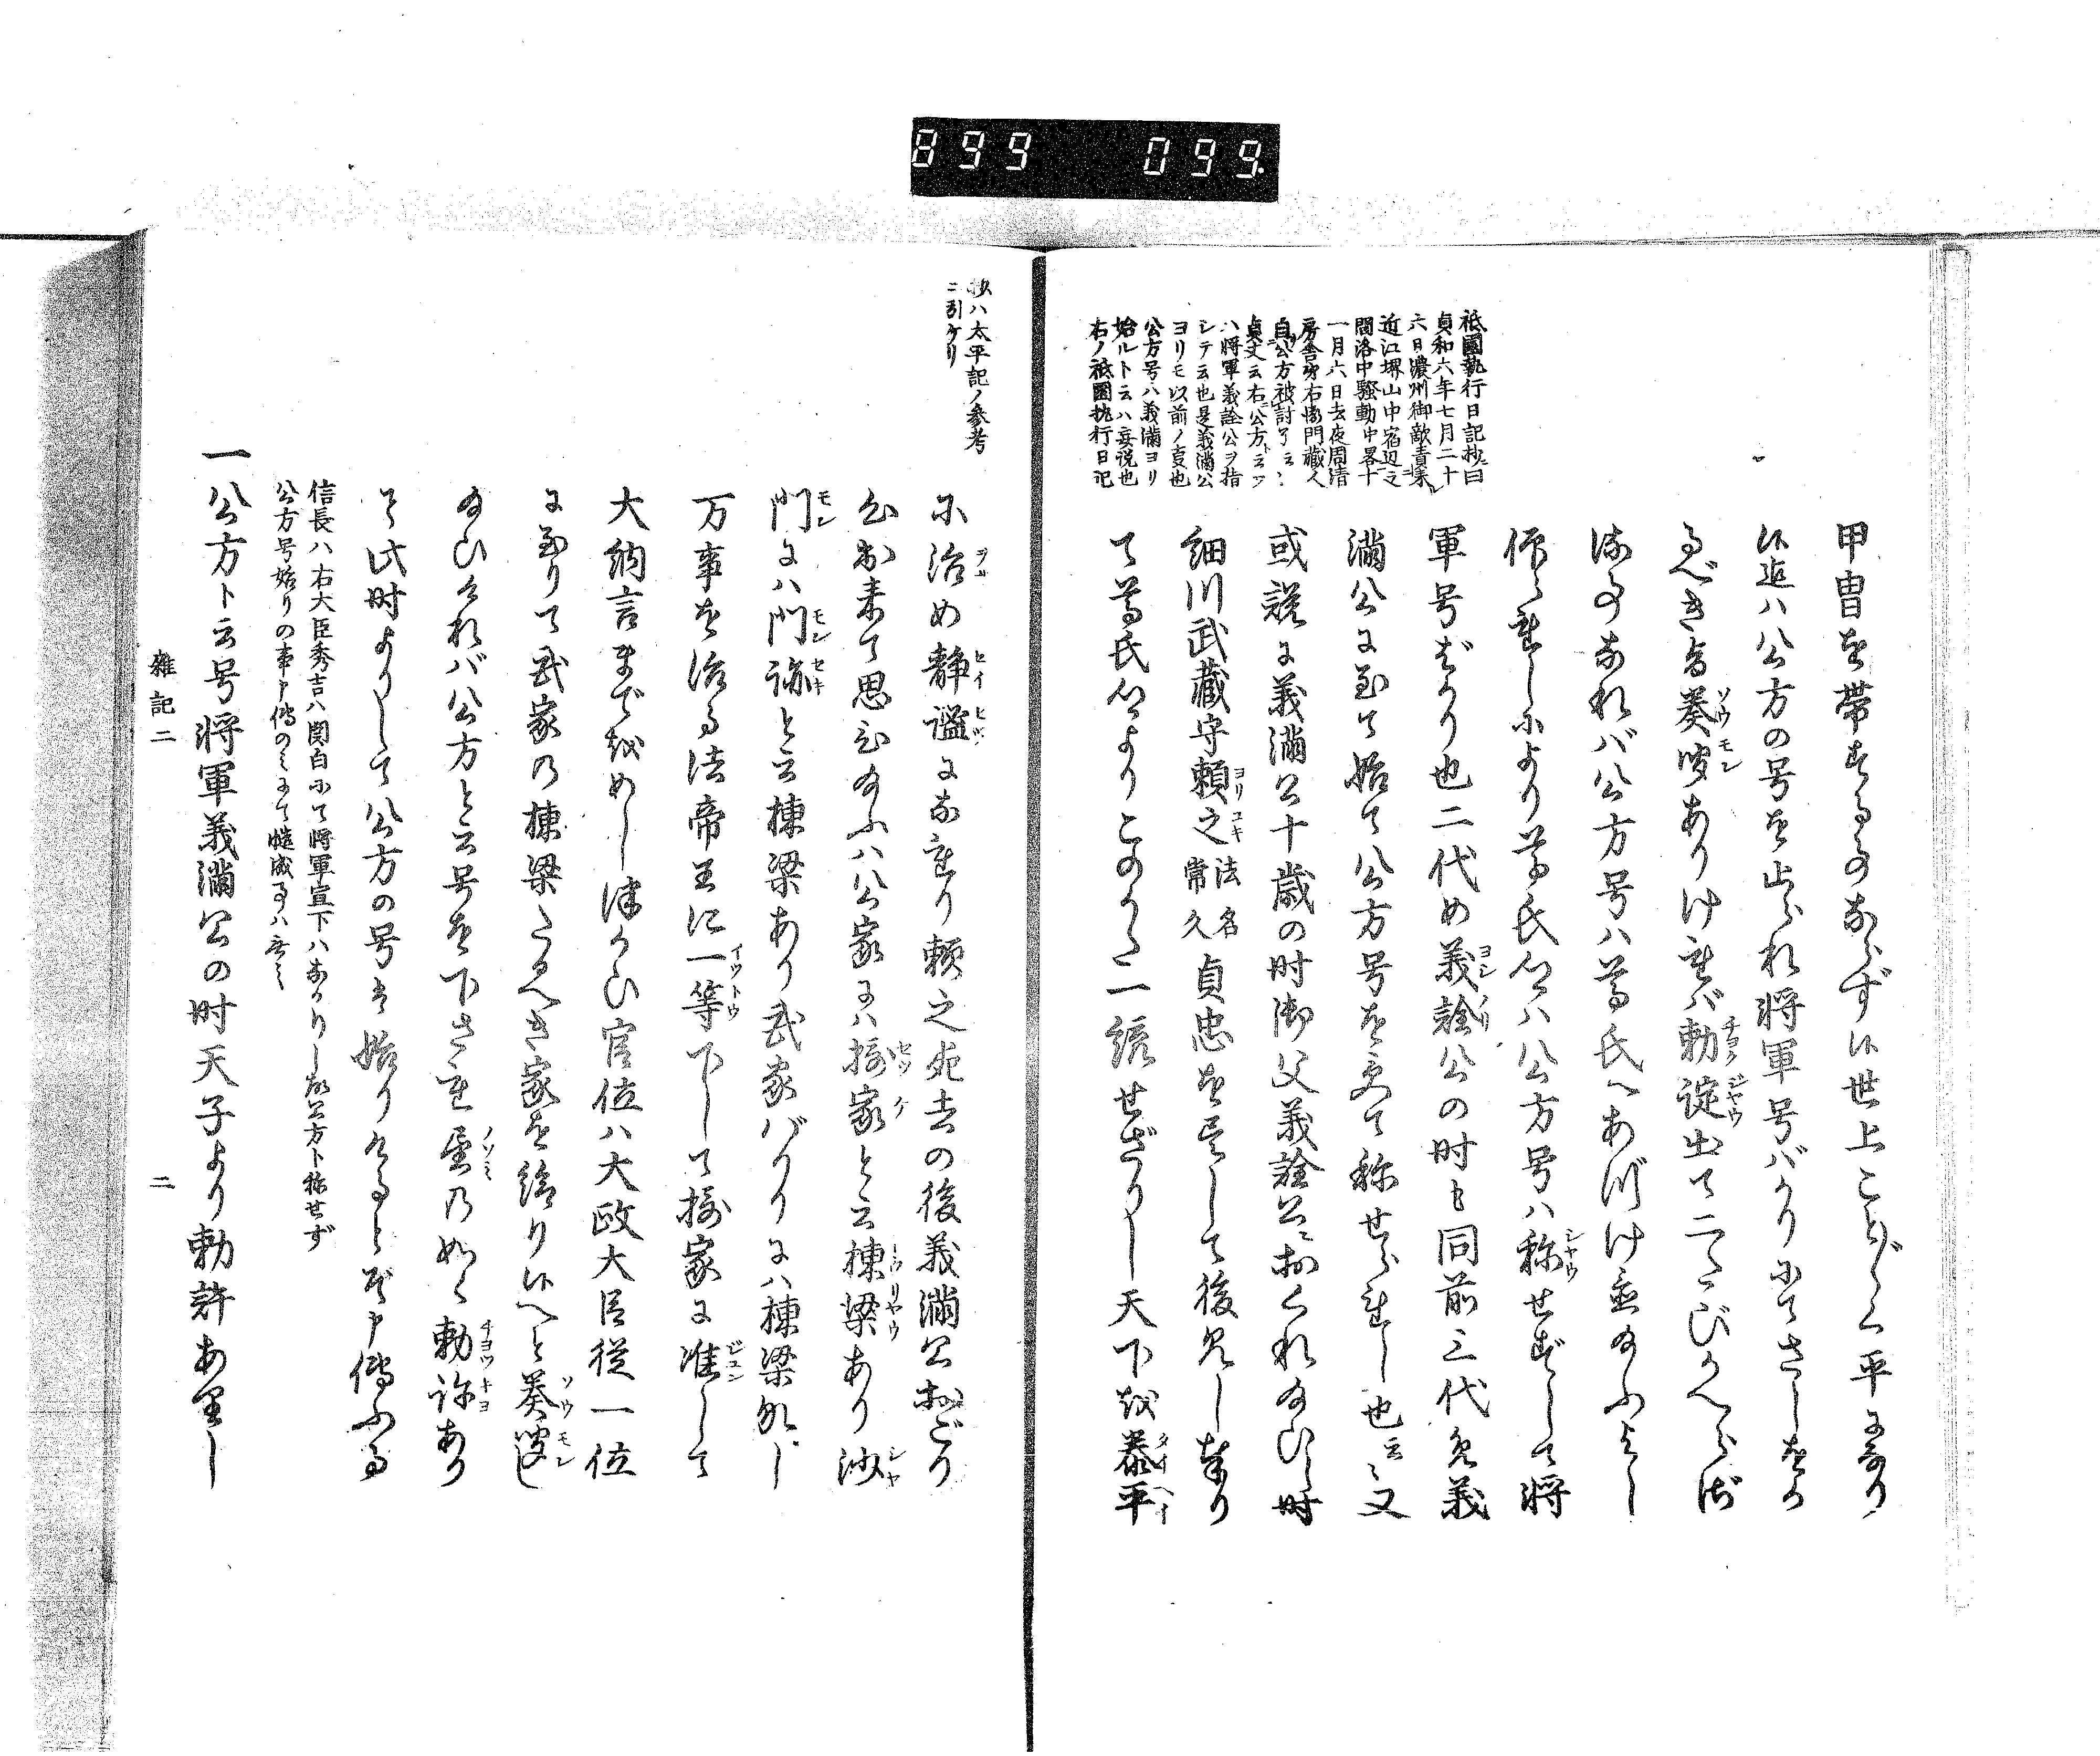 899 099
祇園執行日記抄ニ曰
貞和六年七月二十
六日濃州御敵責集ル
近江堺山中宿辺云々
間洛中騒動中畧十
一月六日去夜周清
房舎弟右衛門蔵人
自公方被討了云々
貞丈云右ニ公方ト云フ
ハ将軍義詮公ヲ指
シテ云也是義満公
ヨリモ以前ノ事也
公方号ハ義満ヨリ
始ルト云ハ妄説也
右ノ祇園執行日記
甲冑を帯するのならず世上ことごとく平になり
公方の号を止られ将軍号バかりにてさしをか
るべき旨奏聞ありければ勅諚出て二たびかへらざ
なれバ公方号ハ尊氏へあづけ玉ふよし
仰られしにより尊氏公ハ公方号ハ称せずして将
軍号ばかり也二代め義詮公の时も同前三代め義
満公に至て始て公方号を受て称せられし也云々又
或説に義満公十歳の时御父義詮公におくれ玉ひし时
細川武蔵守頼之法名常久貞忠を尽して後見し奉り
て尊氏公よりこのかた一統せざりし天下を泰平
に治め静謐になれり頼之死去の後義満公おごり
心出来て思ひ玉ふハ公家にハ摂家と云棟梁あり沙
門にハ門跡と云棟梁あり武家バかりにハ棟梁なし
万事を治る法帝王に一等下して摂家に准して
大納言まですゝめし 官位ハ大政大臣従一位
に至りて武家の棟梁たるへき家を給り候へと奏聞し
玉ひけれバ公方と云号を下され望の如く勅許あり
て此时よりして公方の号は始りけるとぞ申傳ふる
信長ハ右大臣秀吉ハ関白にて将軍宣下ハなかりし故公方ト称せず
公方号始りの事申傳のミにて慥成事ハ無之
一公方ト云号将軍義満公の时天子より勅許あり し
雑記二 二
抄ハ太平記ノ参考
ニ引ケリ